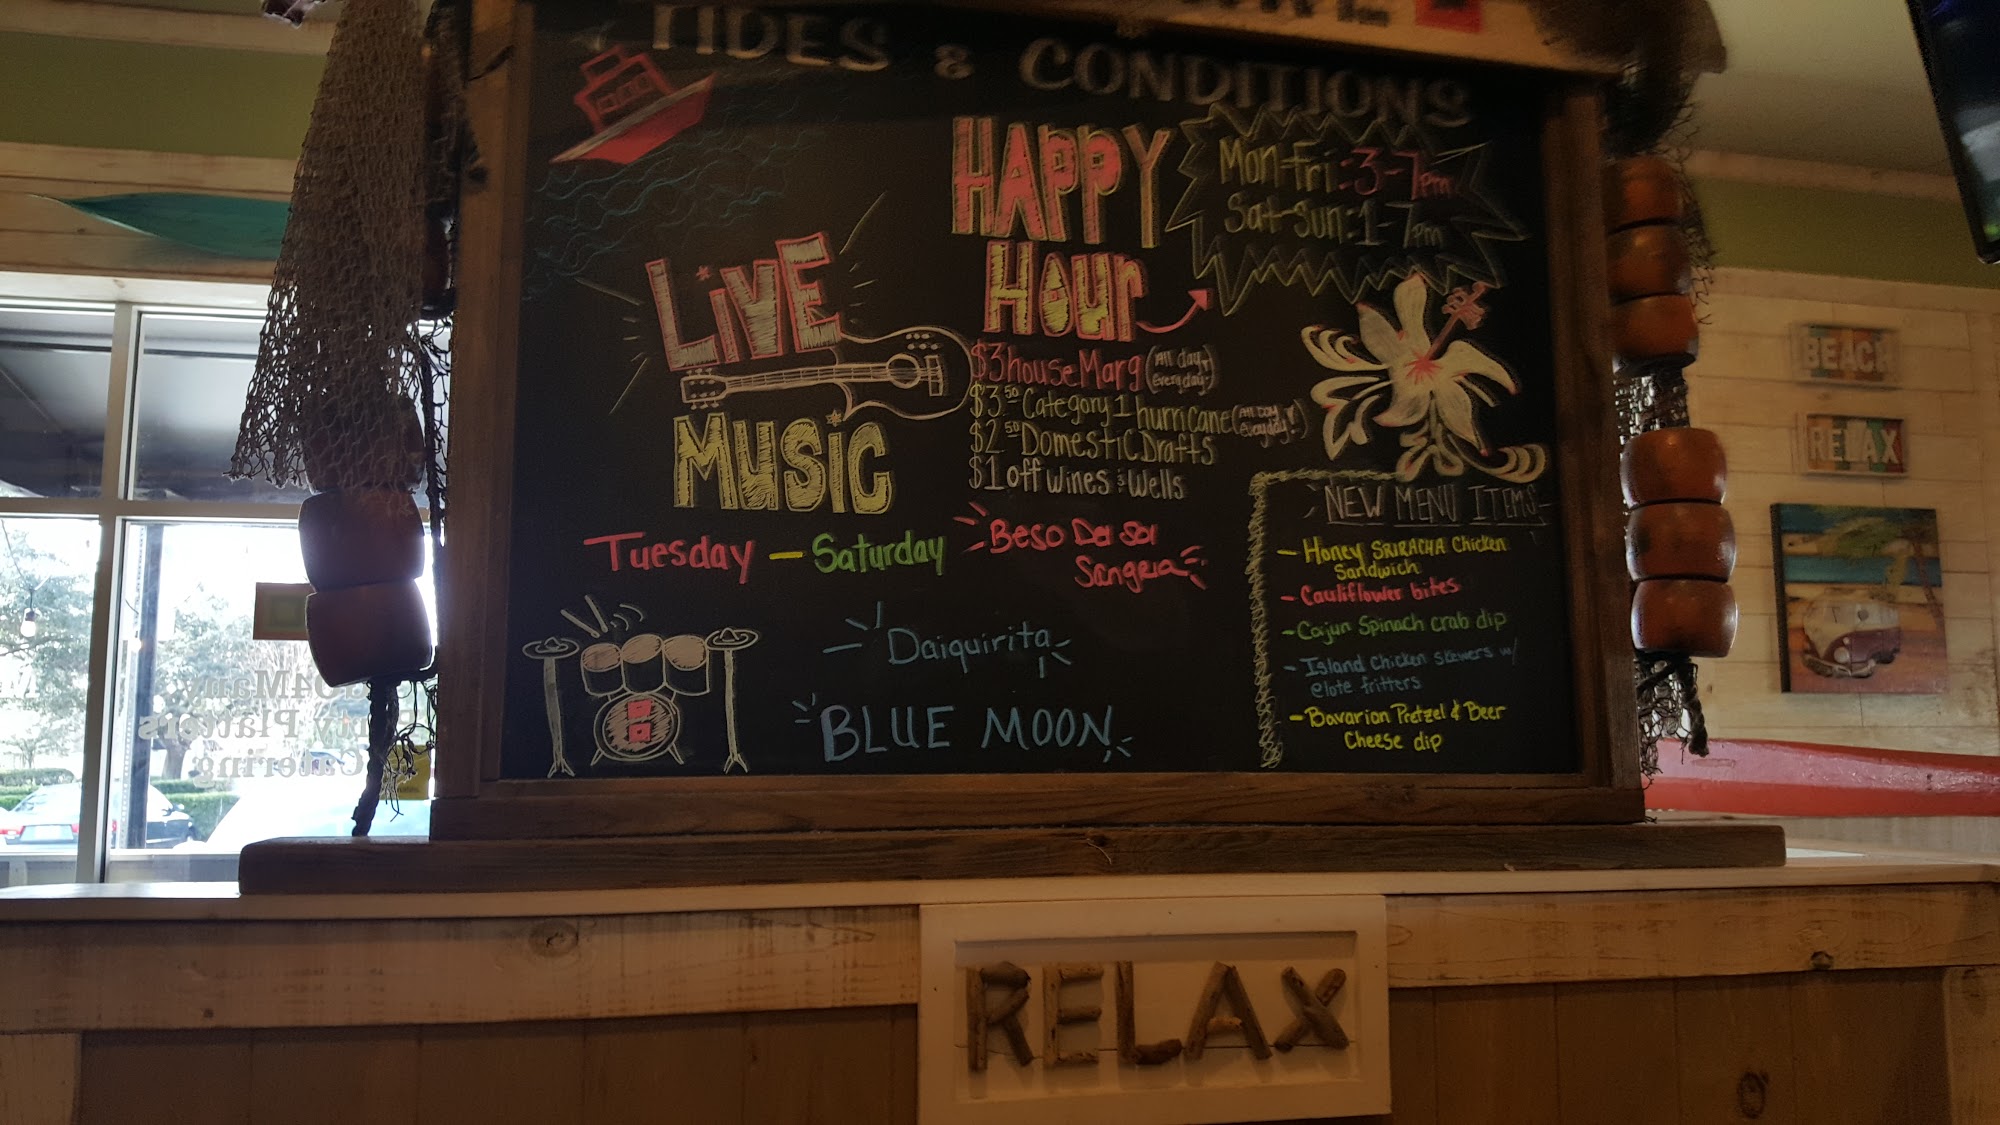 TIDES & CONDITIONS
LIVE
MUSIC
Tuesday - Saturday
HAPPY
HOUR
Mon-Fri: 3-7pm
Sat-Sun: 1-7pm
$3 house Marg (All day, everyday!)
$3.50 Category 1 hurricane (All Day everyday!)
$2.50 Domestic Drafts
$1 off wines & wells
Beso Del Sol
Sangria
Daiquirita
BLUE MOON
NEW MENU ITEMS
- Honey SRIRACHA Chicken
Sandwich
- Cauliflower bites
- Cajun Spinach crab dip
- Island Chicken skewers w/
elote fritters
- Bavarian Pretzel & Beer
Cheese dip
BEACH
RELAX
Platters
Catering
RELAX